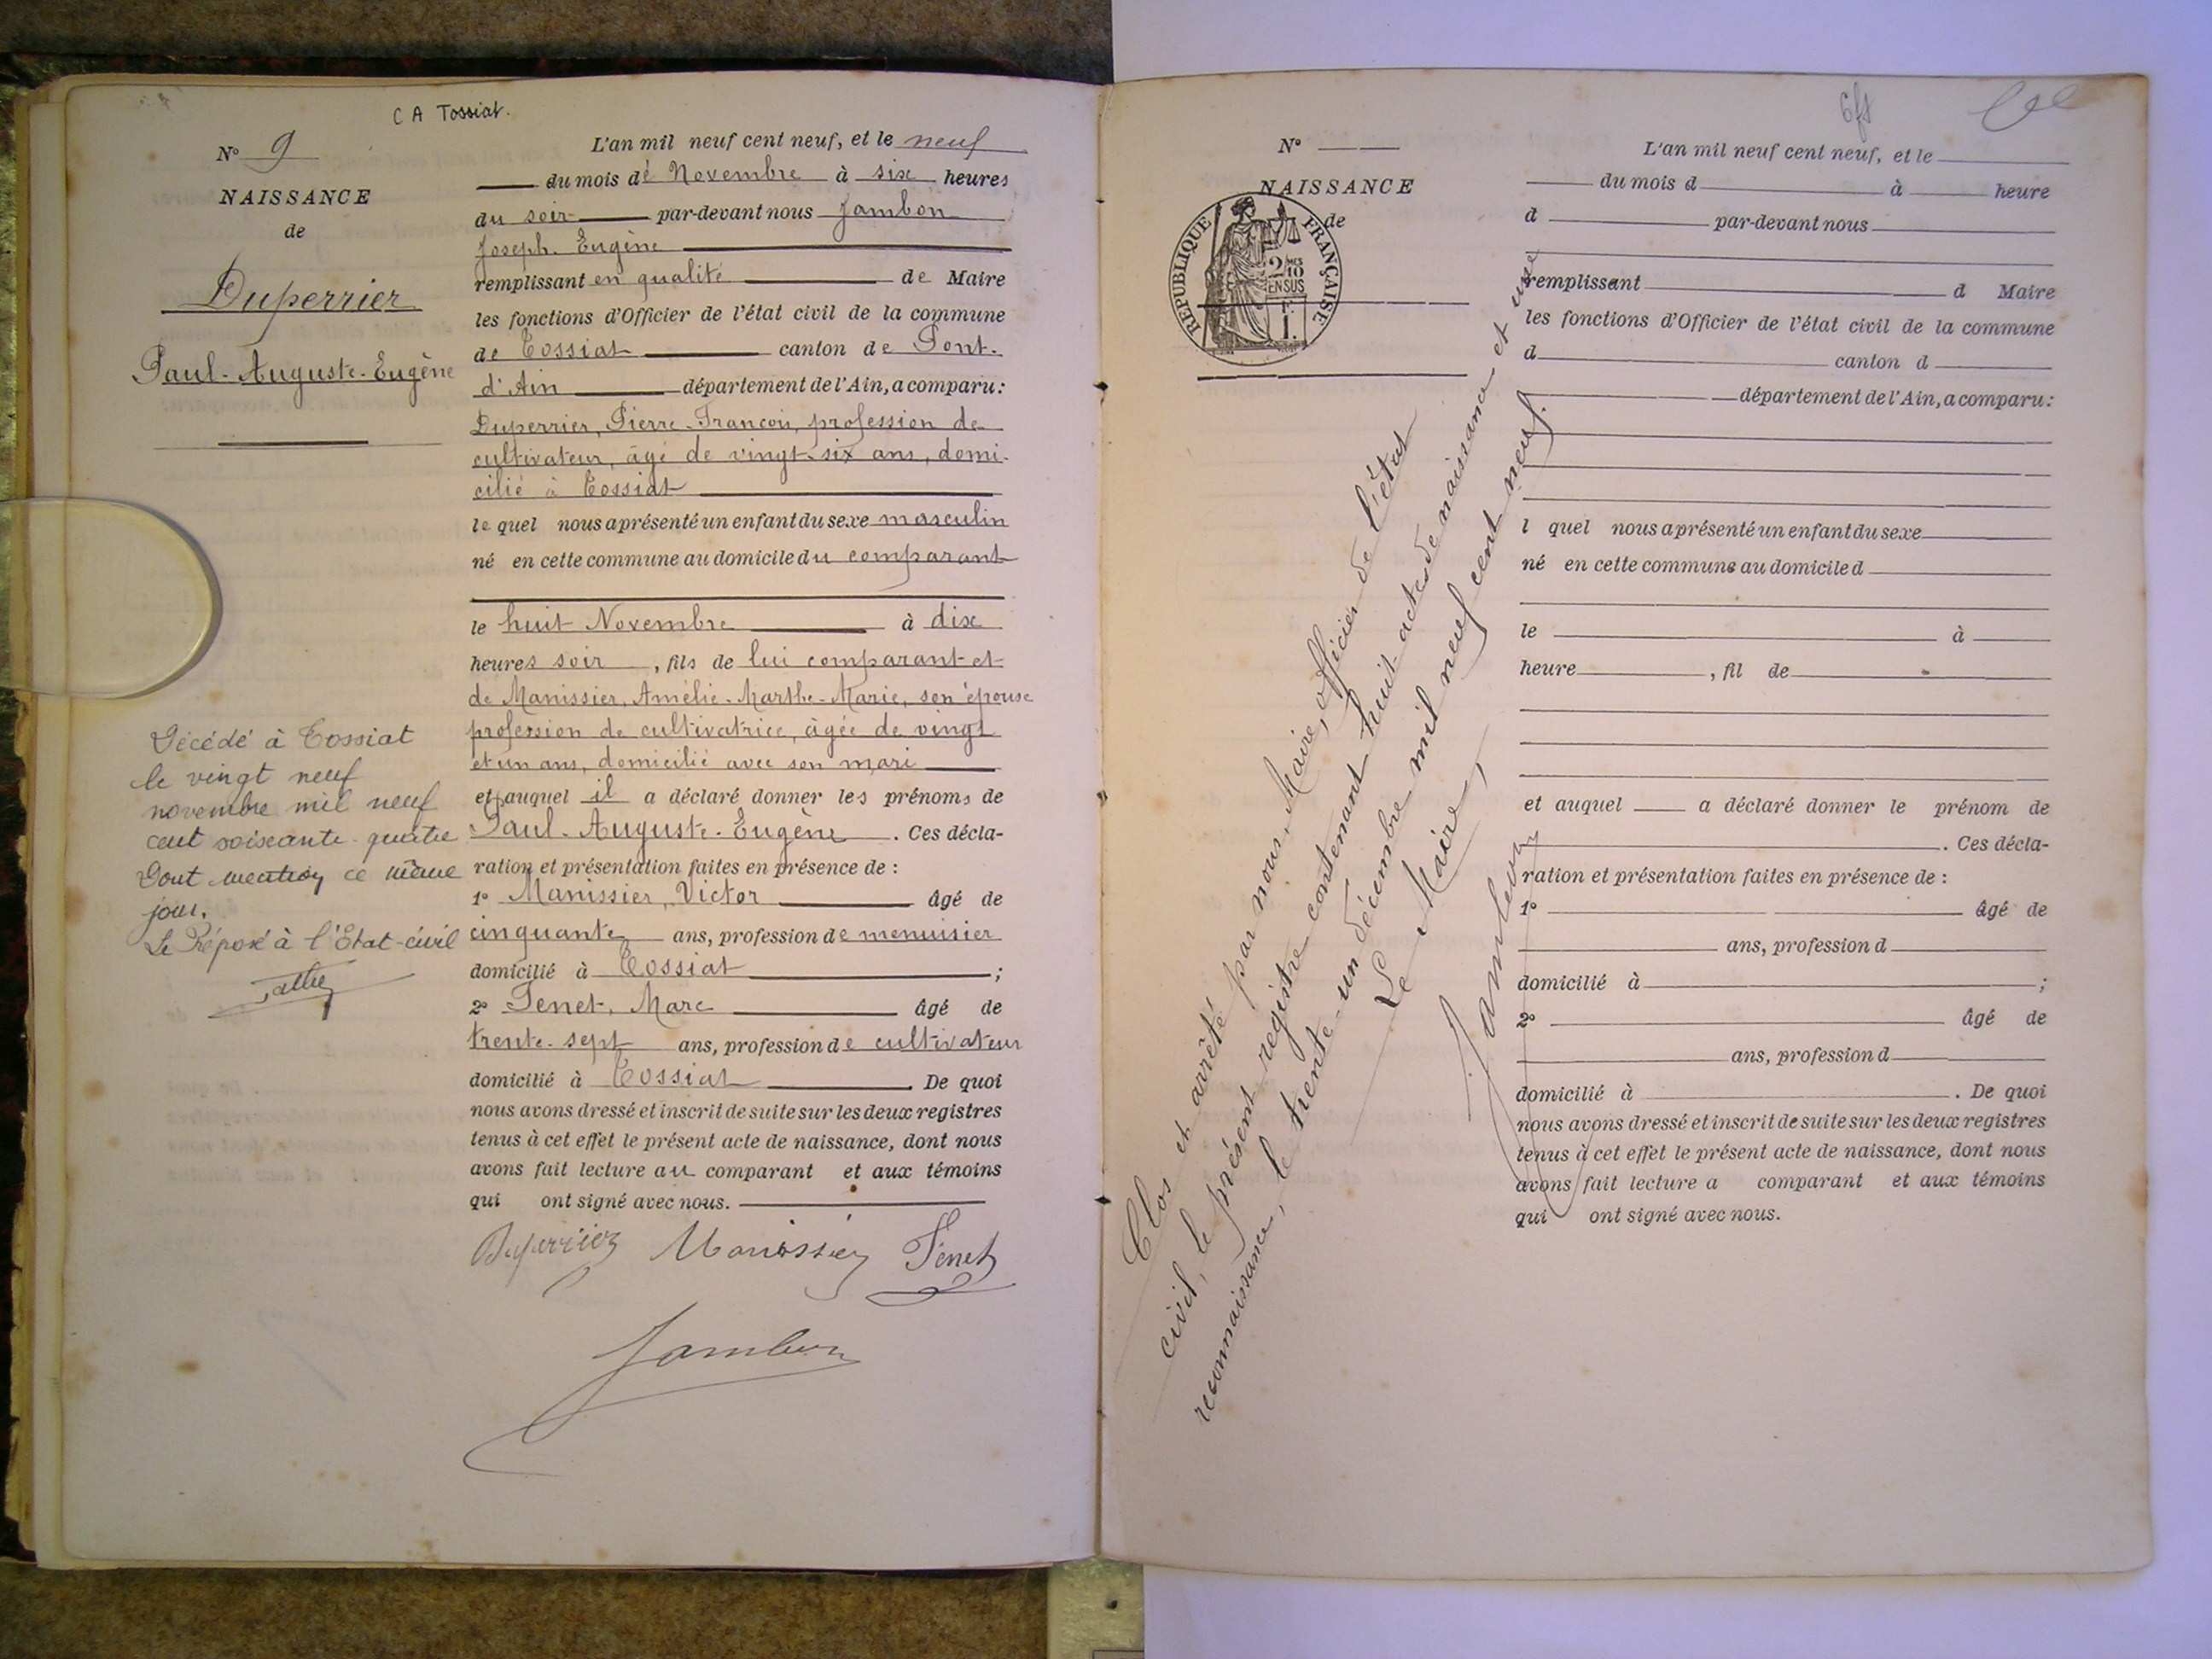 C A Tossiat.
N° 9
NAISSANCE
de
Duperrier
Paul-Auguste-Eugène
Décédé à Tossiat
le vingt neuf
novembre mil neuf
cent soixante-quatre
Dont mention ce même
jour.
Le Préposé à l'Etat-civil
L'an mil neuf cent neuf, et le neuf
du mois de Novembre à six heures
du soir par-devant nous Jambon
Joseph-Eugène
remplissant en qualité de Maire
les fonctions d'Officier de l'état civil de la commune
de Tossiat canton de Pont-
d'Ain département de l'Ain, a comparu :
Duperrier, Pierre-François, profession de
cultivateur, âgé de vingt-six ans, domi-
cilié à Tossiat
lequel nous a présenté un enfant du sexe masculin
né en cette commune au domicile du comparant
le huit Novembre à dix
heures soir, fils de lui comparant et
de Manissier, Amélie-Marthe-Marie, son épouse
profession de cultivatrice, âgée de vingt
et un ans, domicilié avec son mari
et auquel il a déclaré donner les prénoms de
Paul-Auguste-Eugène. Ces décla-
ration et présentation faites en présence de :
1° Manissier, Victor âgé de
cinquante ans, profession de menuisier
domicilié à Tossiat ;
2° Tenet, Marc âgé de
trente-sept ans, profession de cultivateur
domicilié à Tossiat. De quoi
nous avons dressé et inscrit de suite sur les deux registres
tenus à cet effet le présent acte de naissance, dont nous
avons fait lecture au comparant et aux témoins
qui ont signé avec nous.
Duperrier Manissier Tenet
Jambon
N°
NAISSANCE
de
REPUBLIQUE FRANÇAISE
2/10 MES
EN SUS
1 F.
L'an mil neuf cent neuf, et le
du mois d à heure
d par-devant nous
remplissant d Maire
les fonctions d'Officier de l'état civil de la commune
d canton d
département de l'Ain, a comparu :
l quel nous a présenté un enfant du sexe
né en cette commune au domicile d
le à
heure , fil de
et auquel a déclaré donner le prénom de
. Ces décla-
ration et présentation faites en présence de :
1° âgé de
ans, profession d
domicilié à ;
2° âgé de
ans, profession d
domicilié à . De quoi
nous avons dressé et inscrit de suite sur les deux registres
tenus à cet effet le présent acte de naissance, dont nous
avons fait lecture a comparant et aux témoins
qui ont signé avec nous.
Clos et arrêté par nous, Maire, officier de l'état
civil, le présent registre contenant huit actes de naissance et une
reconnaissance, le trente-un décembre mil neuf cent neuf.
Le Maire,
Jambon